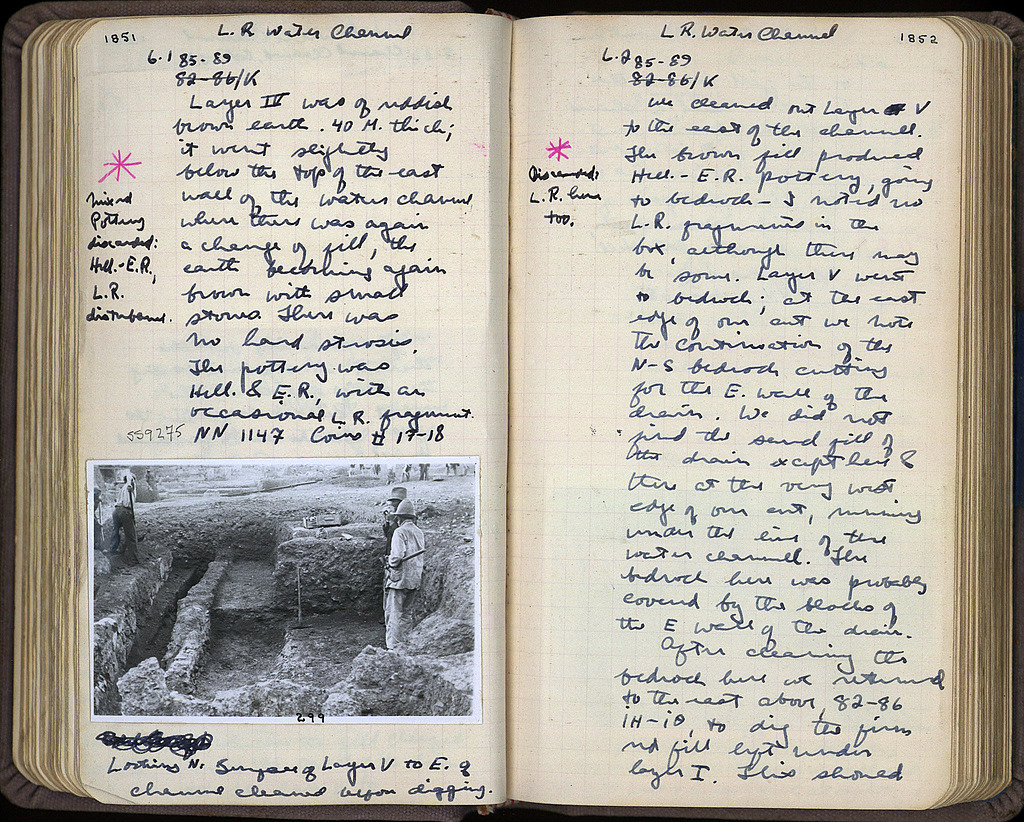 1851
L.R Water Channel
6.1 85-89
82-86/K
Layer IV was of reddish
brown earth .40 M. thick;
it went slightly
below the top of the east
wall of the water channel
where there was again
a change of fill, the
earth becoming again
brown with small
stones. There was
no hard strosis.
The pottery was
Hell. & E.R., with an
occasional L.R. fragment.
559275 NN 1147 Coins # 17-18
Mixed
Pottery
discarded:
Hell.-E.R.,
L.R.
disturbance.
299
Looking N. Surface of Layer V to E. of
channel cleaned before digging.
1852
L.R. Water Channel
L.2 85-89
82-86/K
We cleaned out Layer V
to the east of the channel.
The brown fill produced
Hell.-E.R. pottery, going
to bedrock - I noted no
L.R. fragments in the
box, although there may
be some. Layer V went
to bedrock; at the east
edge of our cut we note
the continuation of the
N-S bedrock cutting
for the E. wall of the
drain. We did not
find the sand fill of
the drain except here &
there at the very west
edge of our cut, running
under the line of the
water channel. The
bedrock here was probably
covered by the blocks of
the E wall of the drain.
After clearing the
bedrock here we returned
to the east above, 82-86
ΙΗ-ΙΘ, to dig the firm
red fill left under
layer I. This showed
Discarded:
L.R. here
too.